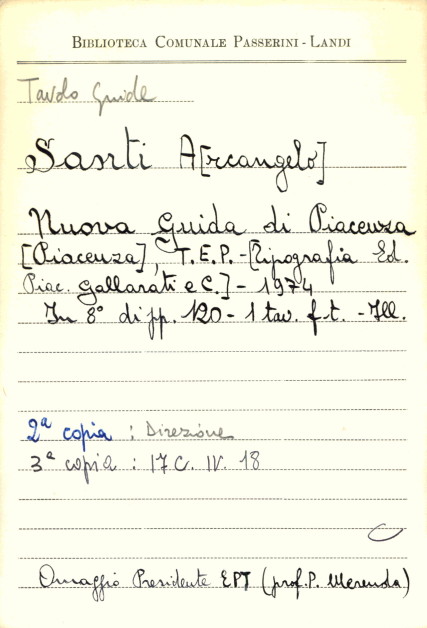 BIBLIOTECA COMUNALE PASSERINI - LANDI
Tavolo Guide
Santi A[rcangelo]
Nuova Guida di Piacenza
[Piacenza], T.E.P. - [Tipografia Ed.
Piac. Gallarati e C.] - 1974
In 8° di pp. 120 - 1 tav. f.t. - Ill.
2ª copia : Direzione
3ª copia : 17 C. IV. 18
C
Omaggio Presidente EPT (prof. P. Merenda)